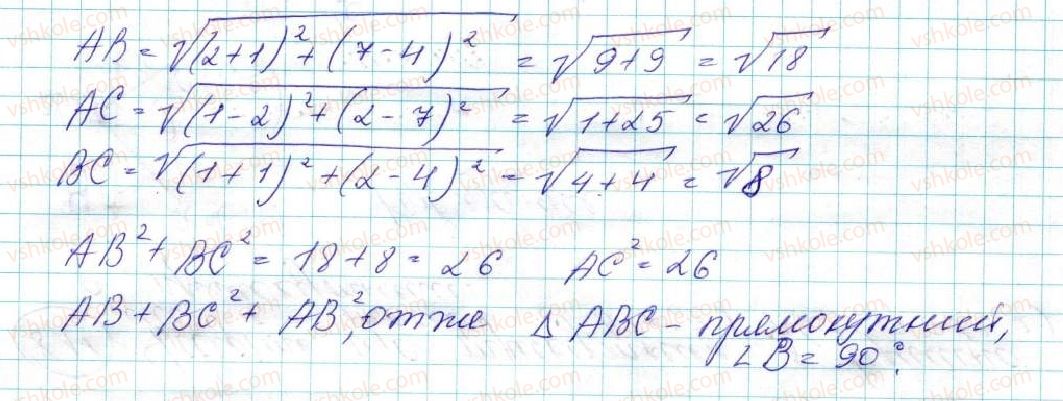 AB = √((2+1)² + (7-4)²) = √(9+9) = √18
AC = √((1-2)² + (2-7)²) = √(1+25) = √26
BC = √((1+1)² + (2-4)²) = √(4+4) = √8
AB² + BC² = 18+8 = 26 AC² = 26
AB + BC² + AB², отже Δ ABC - прямокутний,
∠B = 90°.